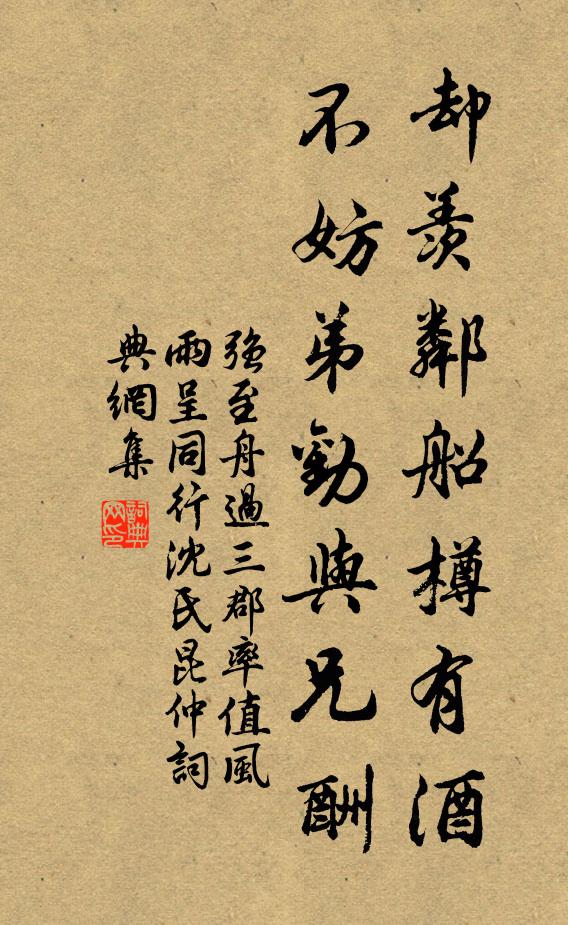 却羨鄰船樽有酒
不妨弟勸與兄酬
强至舟過三郡率值風
雨呈同行沈氏昆仲詞
典網集
詞典網印